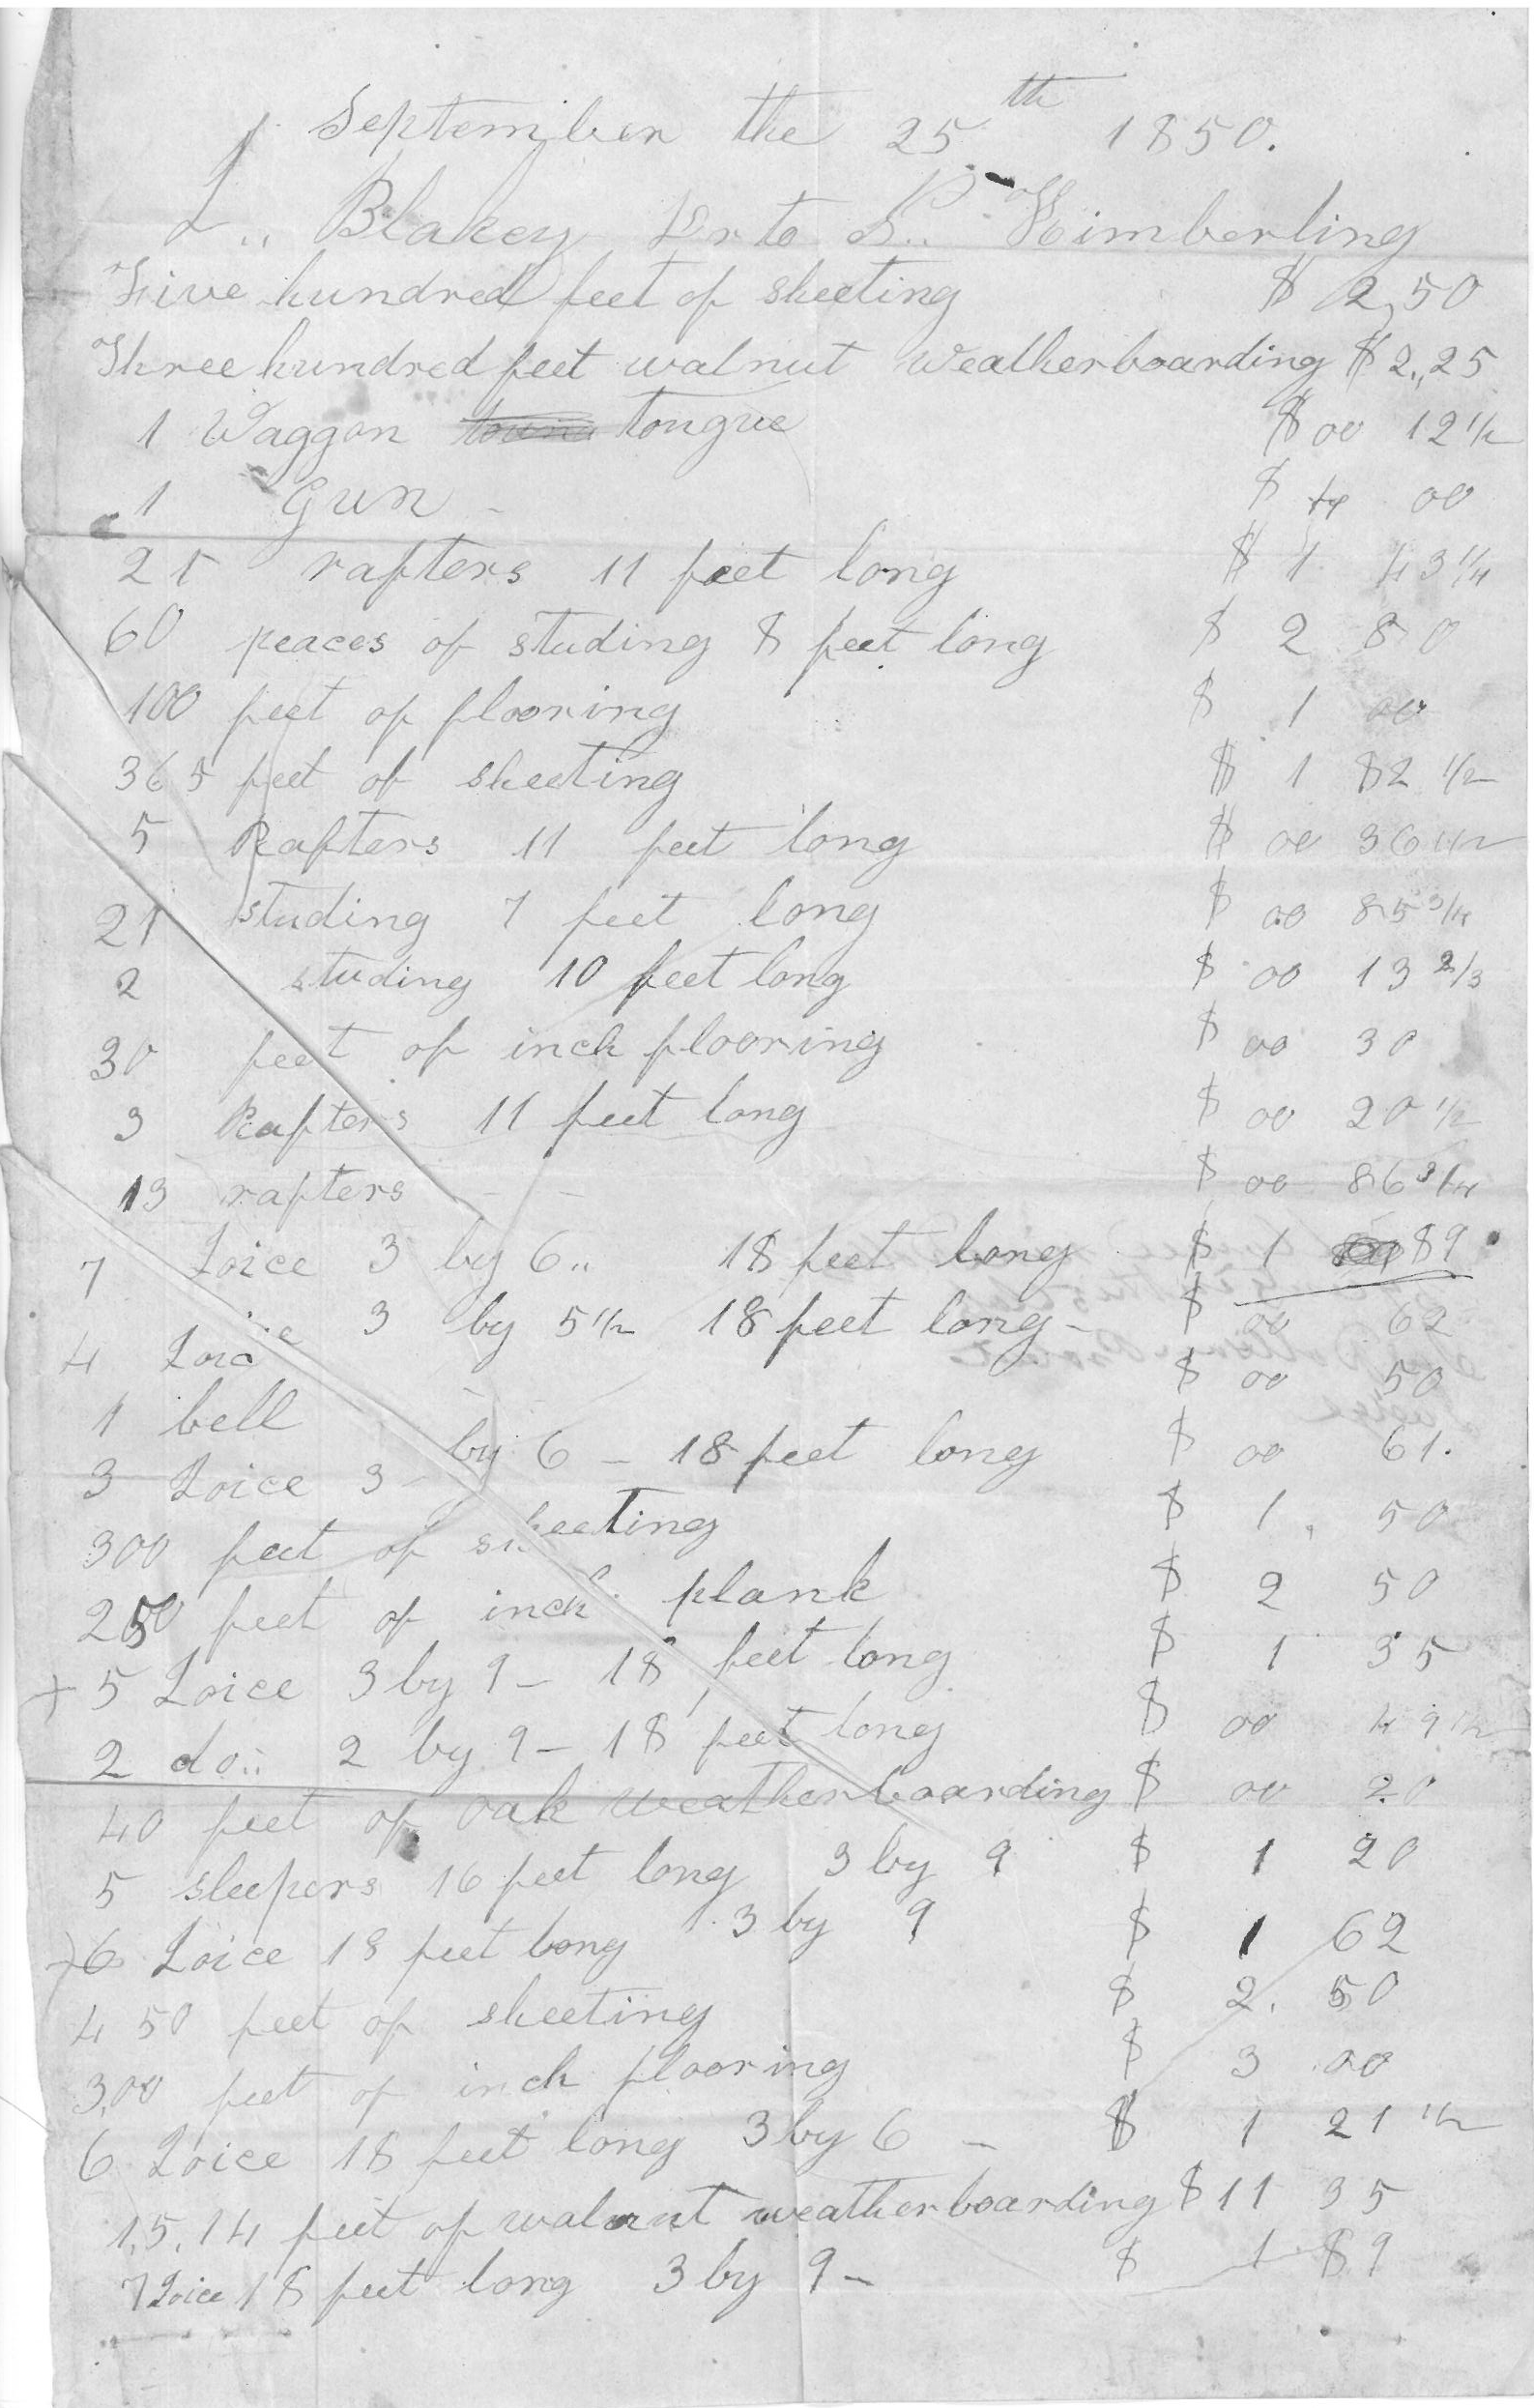 September the 25th 1850.
L.. Blakey Dr to S.. Kimberling
Five hundred feet of sheeting $ 2,50
Three hundred feet walnut weatherboarding $ 2,,25
1 Waggon tongue $ 00 12 1/2
1 Gun - $ 4 00
21 rafters 11 feet long $ 1 43 1/4
60 peaces of studing 8 feet long $ 2 80
100 feet of flooring $ 1 00
365 feet of sheeting $ 1 82 1/2
5 Rafters 11 feet long $ 00 36 1/2
21 studing 7 feet long $ 00 85 3/4
2 studing 10 feet long $ 00 13 2/3
30 feet of inch flooring $ 00 30
3 Rafters 11 feet long $ 00 20 1/2
13 rafters - - $ 00 86 3/4
7 Joice 3 by 6,, 18 feet long $ 1 89
4 Joice 3 by 5 1/2 18 feet long - $ 00 62
1 bell $ 00 50
3 Joice 3 - by 6 - 18 feet long $ 00 61.
300 feet of sheeting $ 1, 50
250 feet of inch plank $ 2 50
+ 5 Joice 3 by 9 - 18 feet long $ 1 35
2 do.. 2 by 9 - 18 feet long $ 00 49 1/2
40 feet of oak weatherboarding $ 00 20
5 sleepers 16 feet long 3 by 9 $ 1 20
+6 Joice 18 feet long 3 by 9 $ 1 62
450 feet of sheeting $ 2. 50
3,00 feet of inch flooring $ 3 00
6 Joice 18 feet long 3 by 6 - $ 1 21 1/2
1,5,14 feet of walnut weatherboarding $ 11 35
7 Joice 18 feet long 3 by 9 - $ 1 89